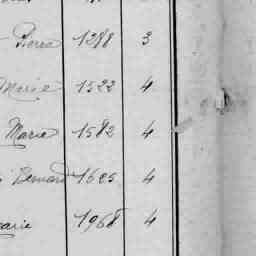 Pierre 1288 3
Marie 1522 4
Marie 1582 4
Bernard 1625 4
Marie 1968 4